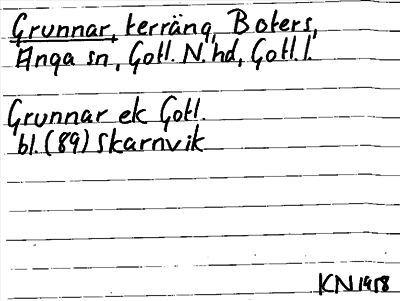 Grunnar, terräng, Boters,
Anga sn, Gotl. N. hd, Gotl. l.
Grunnar ek Gotl.
bl. (89) Skarnvik
KN 1958